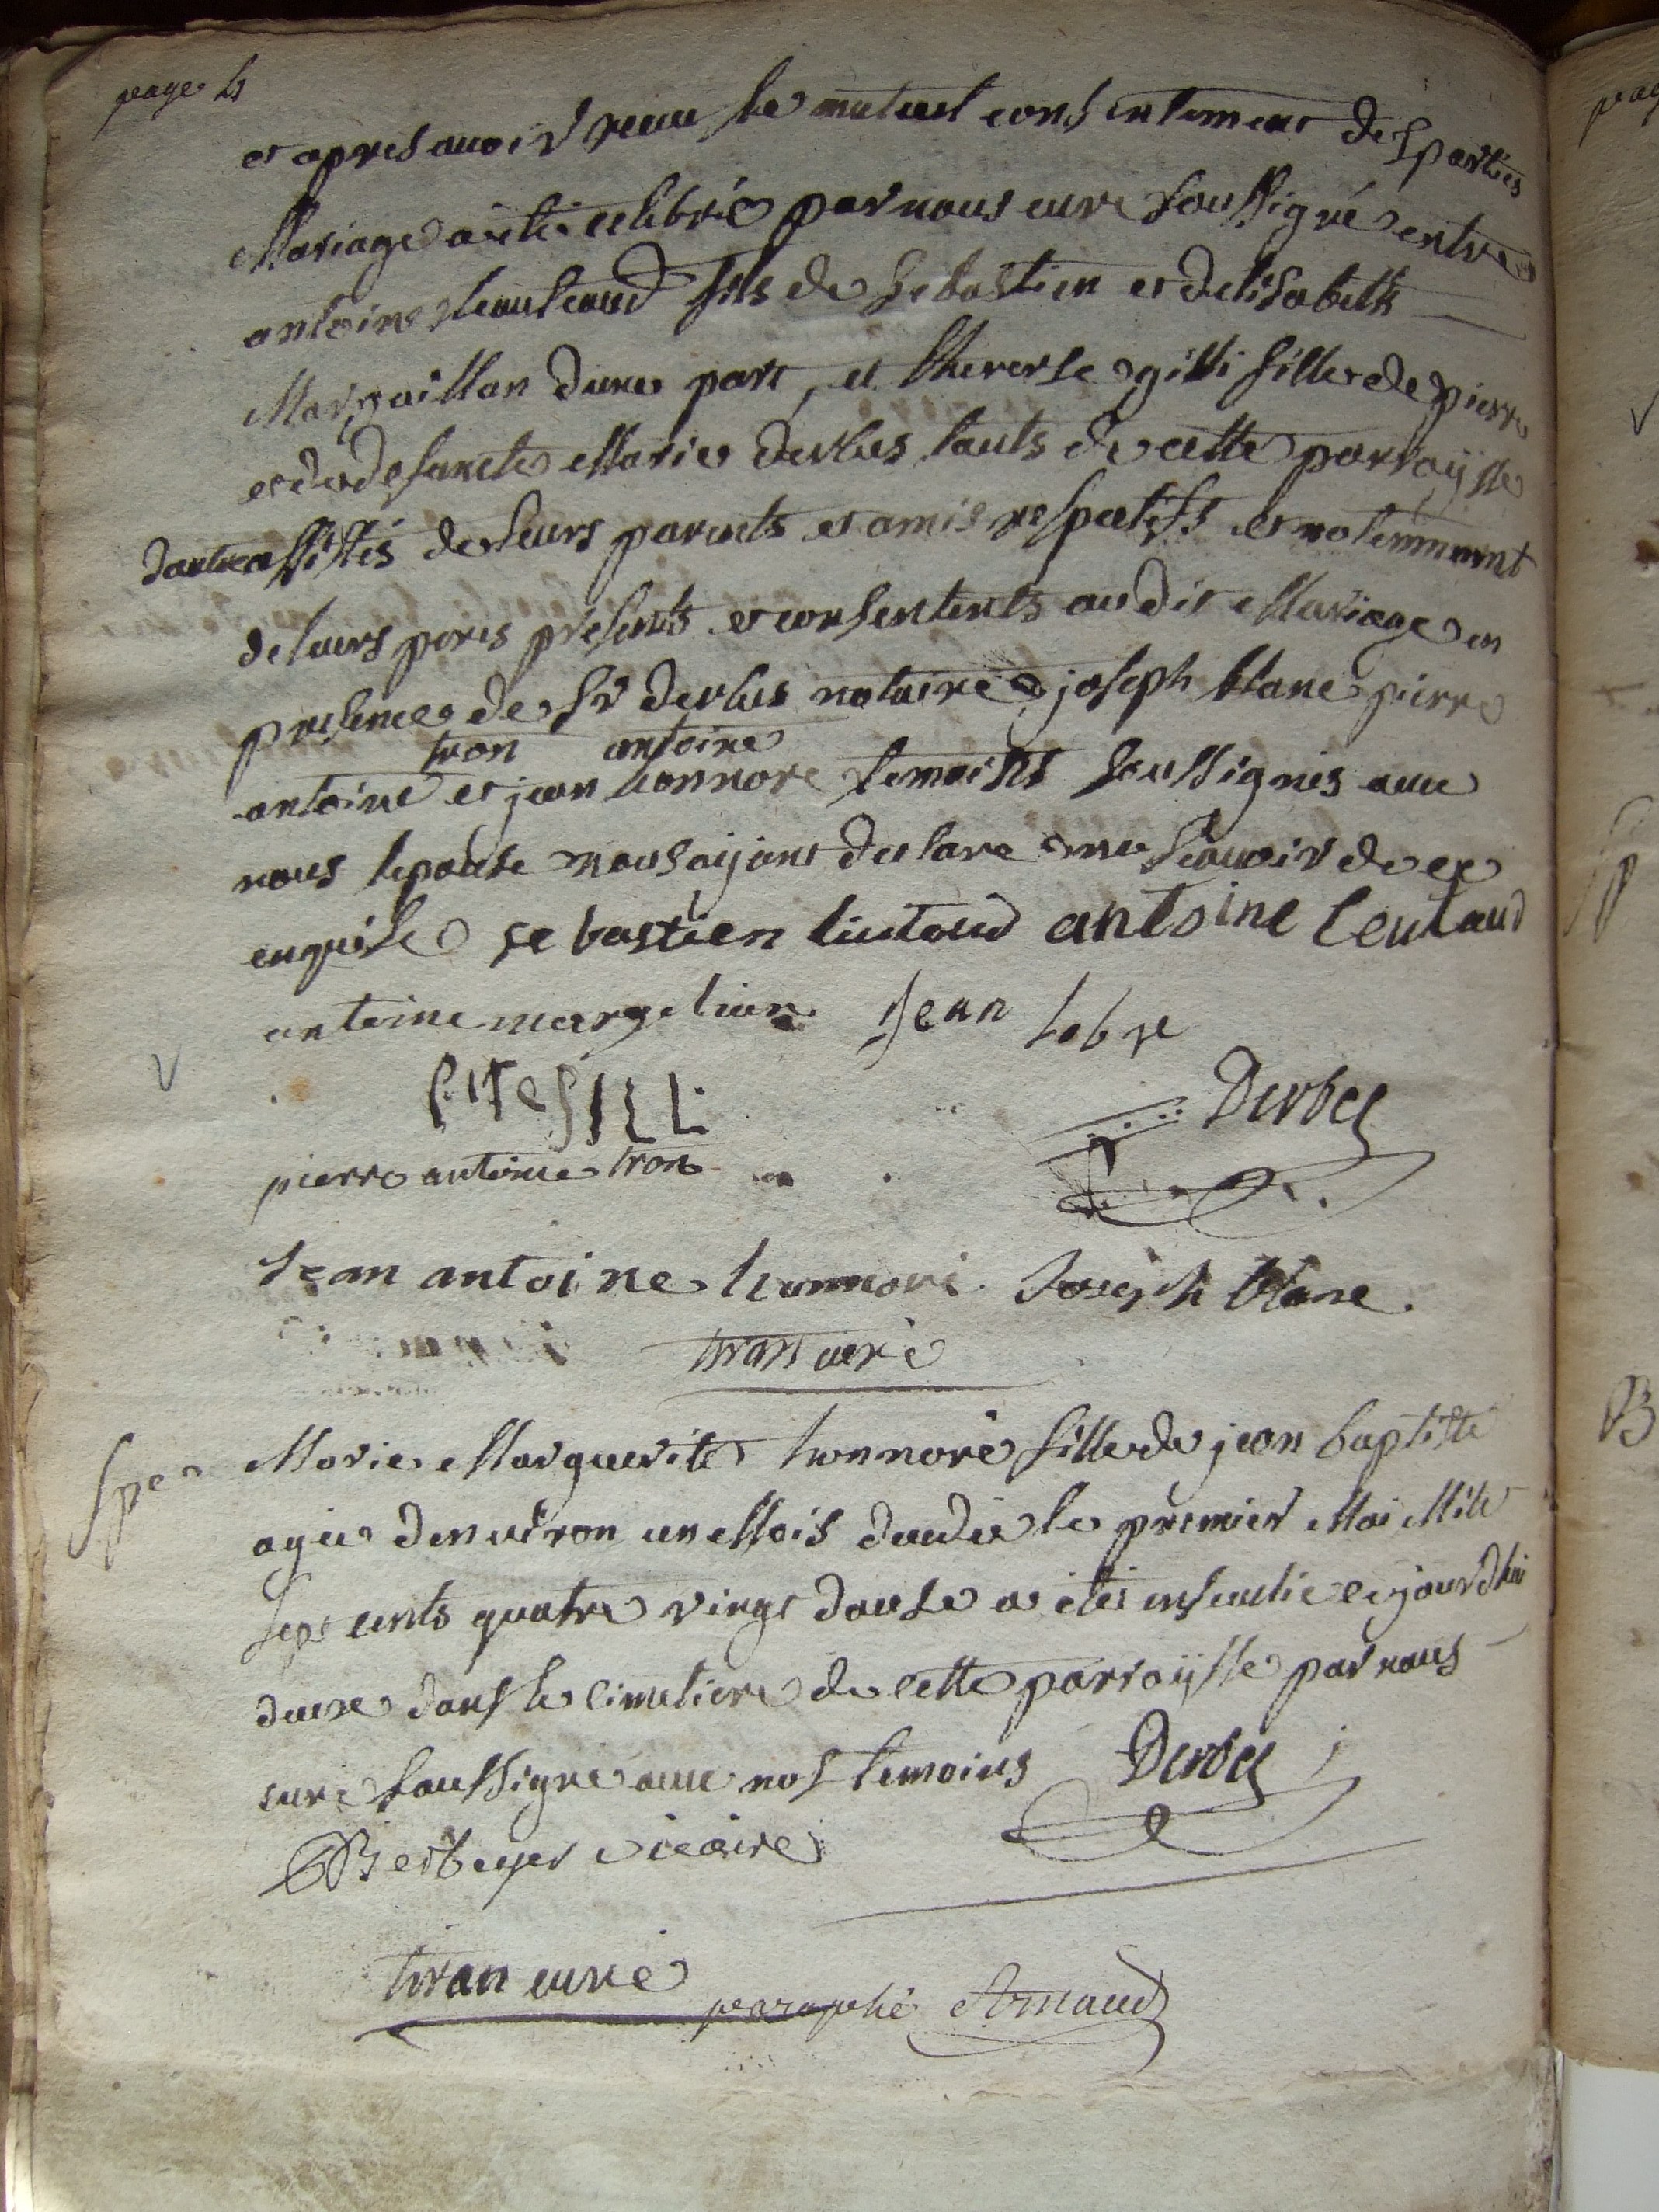 page 4
et apres avoir receu le mutuel consentement des parties
Mariage a eté celebré par nous curé soussigné entre
antoine leautaud fils de sebastien et delisabeth
Margaillan dune part, et therese gilli fille de pierre
et de defuncte Marie derbes touts de cette parroysse
dautre assistés de leurs parents et amis respectifs et notemment
de leurs peres presents et consentents audit Mariage en
presence de sr derbes notaire joseph blanc pierre
tron antoine
antoine et jean honnore temoins soussignés avec
nous lepouse nous ayant declare ne scavoir de ce
enquise sebastien liutaud antoine leutaud
antoine margelian Jean
pierre antoine tron
Derbes
Jean antoine honnore Joseph blanc.
tiran curé
Marie Marguerite honnoré fille de jean baptiste
agée denviron un Mois decedée le premier Mai Mille
sept cents quatre vingt douse a eté ensevelie ce jourdhui
deux dans le cimetiere de cette parroysse par nous
curé soussigné avec nos temoins Derbes
vicaire
tiran curé
paraphé Arnaud